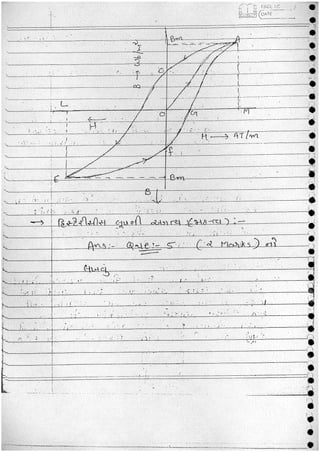 PAGE NO.
DATE
Bm
A
B → wb/m²
C
L
O
G
M
H
H → AT/m
F
E
Bm
B
→ હિસ્ટેરીસીસ લુપની અગત્ય (મહત્વ) :-
Ans :- Que :- 5 (2 Marks) નો